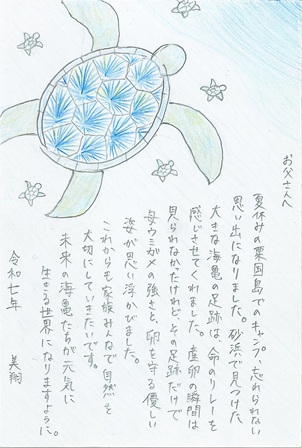 お父さんへ
夏休みの粟国島でのキャンプ、忘れられない
思い出になりました。砂浜で見つけた
大きな海亀の足跡は、命のリレーを
感じさせてくれました。産卵の瞬間は
見られなかったけれど、その足跡だけで
母ウミガメの強さと、卵を守る優しい
姿が思い浮かびました。
これからも家族みんなで自然を
大切にしていきたいです。
未来の海亀たちが元気に
生きる世界になりますように。
令和七年 美翔